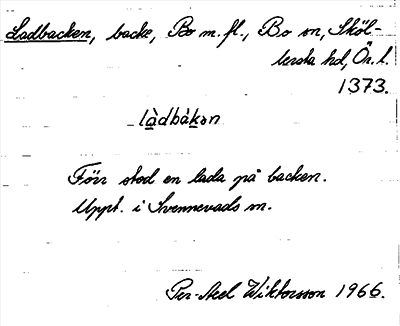 Ladbacken, backe, Bo m.fl., Bo sn, Sköl-
lersta hd, Ör. l.
1373.
làdbàkən
Förr stod en lada på backen.
Uppt. i Svennevads sn.
Per-Axel Wiktorsson 1966.